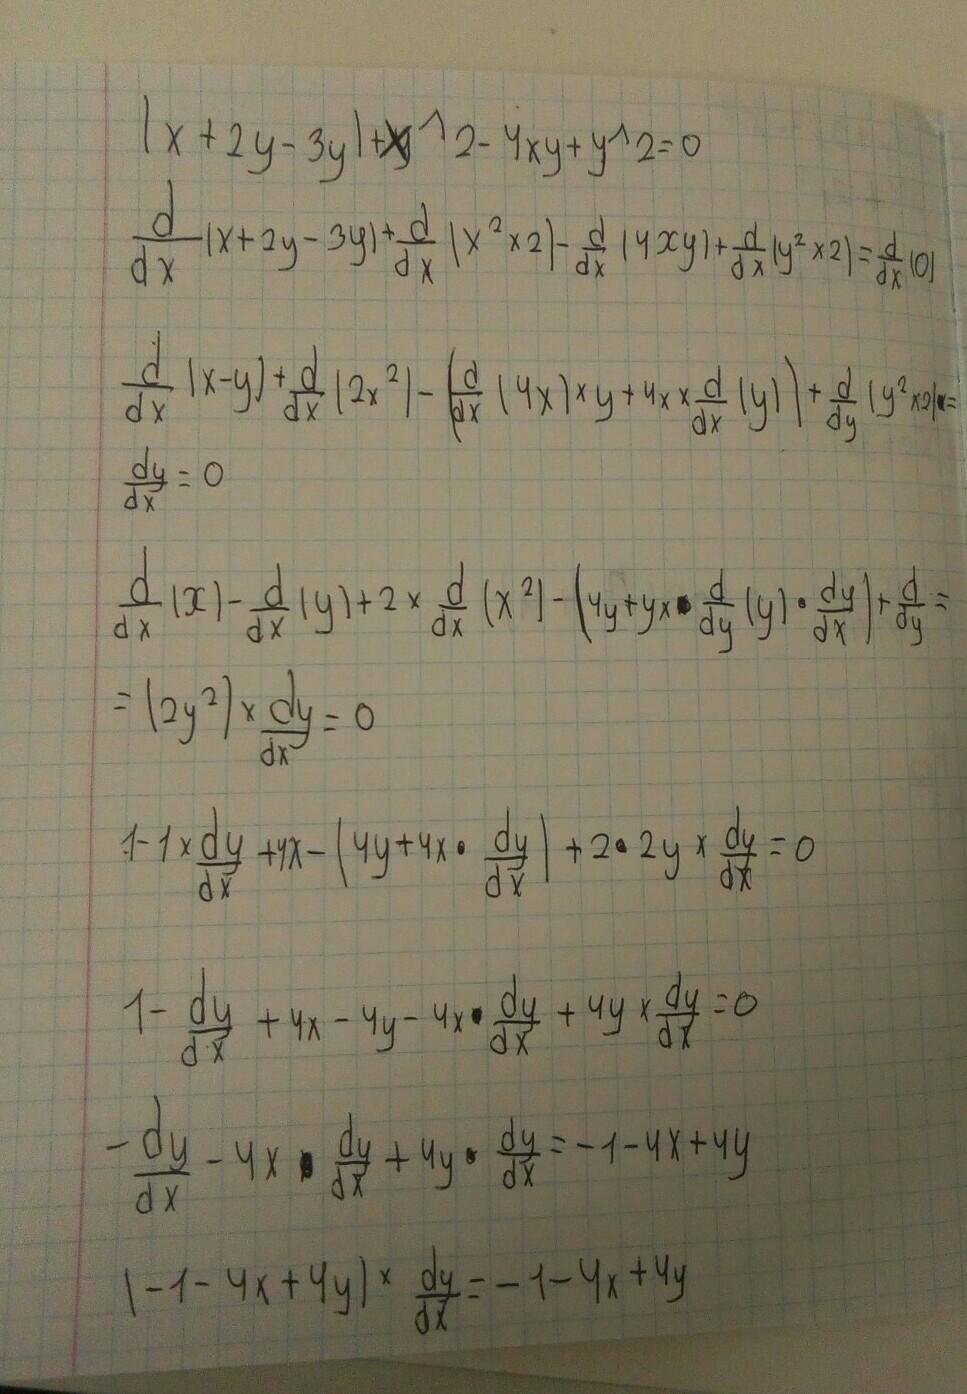 (x+2y-3y)+x^2-4xy+y^2=0
d/dx (x+2y-3y)+d/dx (x²×2)-d/dx (4xy)+d/dx (y²×2)=d/dx (0)
d/dx (x-y)+d/dx (2x²)-(d/dx (4x)×y+4x×d/dx (y))+d/dy (y²×2)×=
dy/dx=0
d/dx (x)-d/dx (y)+2×d/dx (x²)-(4y+4x•d/dy (y)•dy/dx)+d/dy=
=(2y²)×dy/dx=0
1-1×dy/dx+4x-(4y+4x•dy/dx)+2•2y×dy/dx=0
1-dy/dx+4x-4y-4x•dy/dx+4y×dy/dx=0
-dy/dx-4x•dy/dx+4y•dy/dx=-1-4x+4y
(-1-4x+4y)×dy/dx=-1-4x+4y